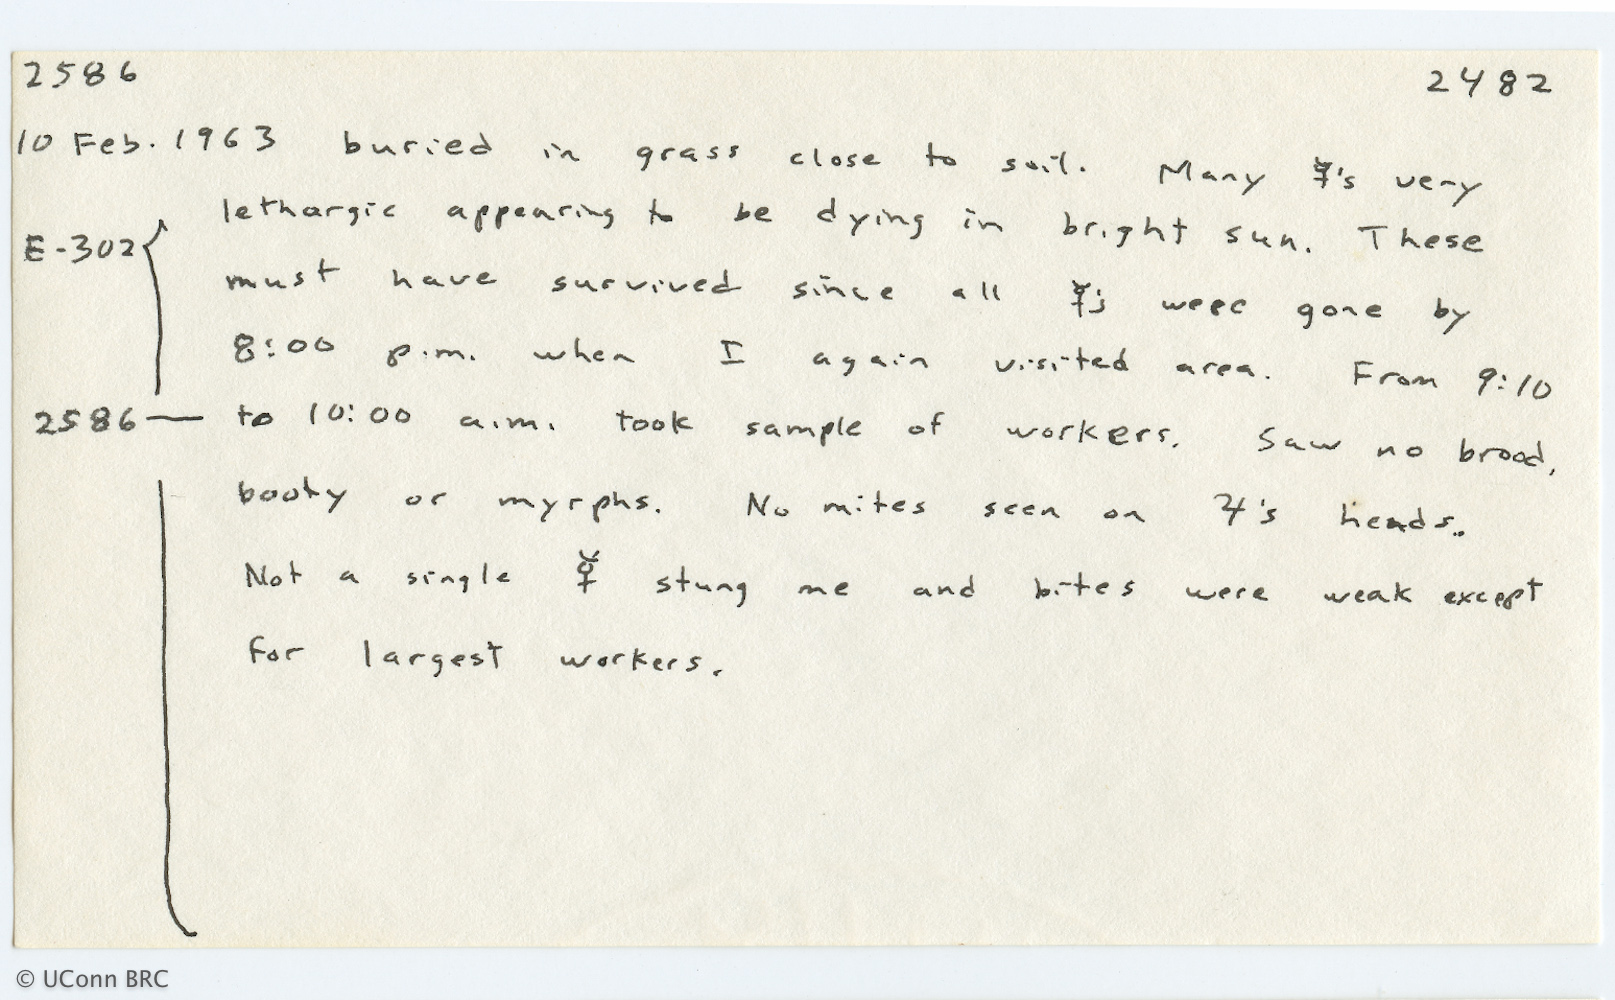 2586 2482
10 Feb. 1963 buried in grass close to soil. Many ☿'s very
lethargic appearing to be dying in bright sun. These
E-302 must have survived since all ☿'s were gone by
8:00 p.m. when I again visited area. From 9:10
2586 — to 10:00 a.m. took sample of workers. Saw no brood,
booty or myrphs. No mites seen on 's heads.
Not a single ☿ stung me and bites were weak except
for largest workers.
© UConn BRC